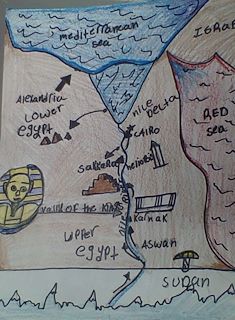 mediterranean
sea
ISRAE
Alexandria
Lower
egypt
nile
Delta
RED
sea
CAIRO
SAKKARA
VALLEY OF THE KINGS
KARNAK
UPPER
egypt
ASWAN
SUDAN